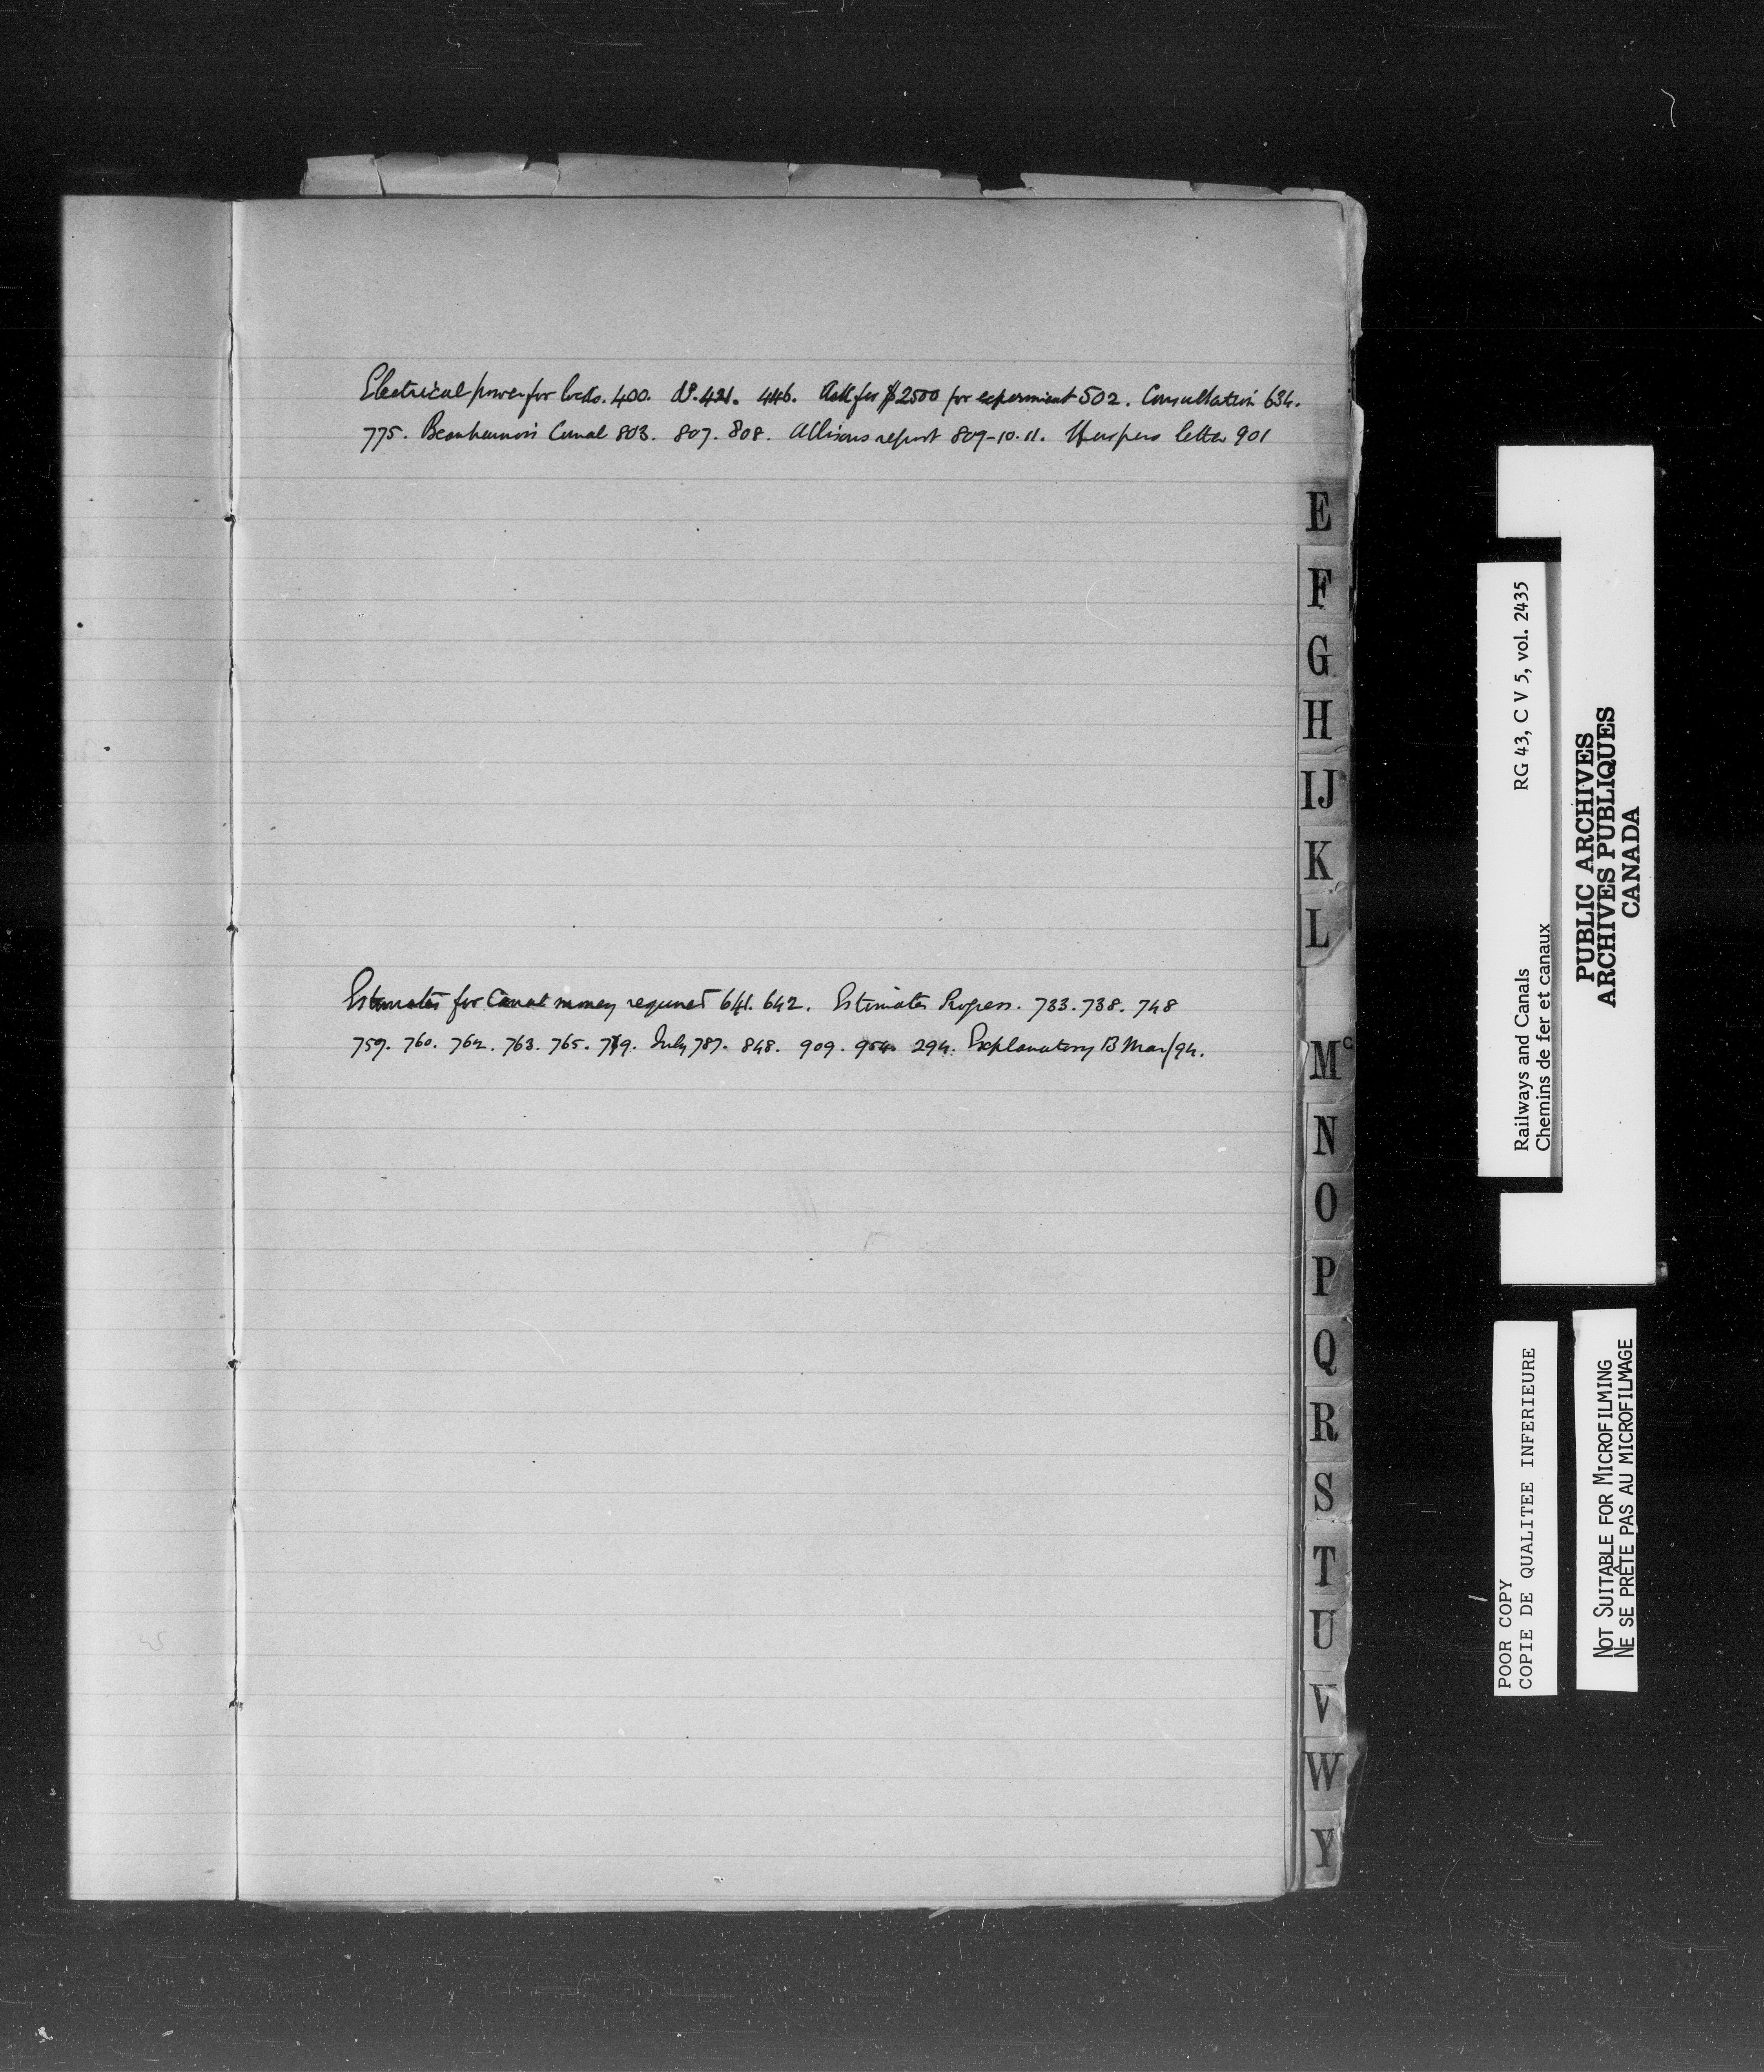 Electrical power for locks. 400. do. 421. 446. Ask for $2500 for experiment 502. Consultation 634.
775. Beauharnois Canal 803. 807. 808. Allisons report 809-10.11. letter 901
Estimates for Canal money required 641. 642. Estimates Progress. 733. 738. 748
759. 760. 762. 763. 765. July 787. 848. 909. 954. 294. Explanatory 13 Mar/94.
E
F
G
H
IJ
K
L
Mc
N
O
P
Q
R
S
T
U
V
W
Y
Railways and Canals RG 43, C V 5, vol. 2435
Chemins de fer et canaux
PUBLIC ARCHIVES
ARCHIVES PUBLIQUES
CANADA
POOR COPY
COPIE DE QUALITEE INFERIEURE
NOT SUITABLE FOR MICROFILMING
NE SE PRÊTE PAS AU MICROFILMAGE